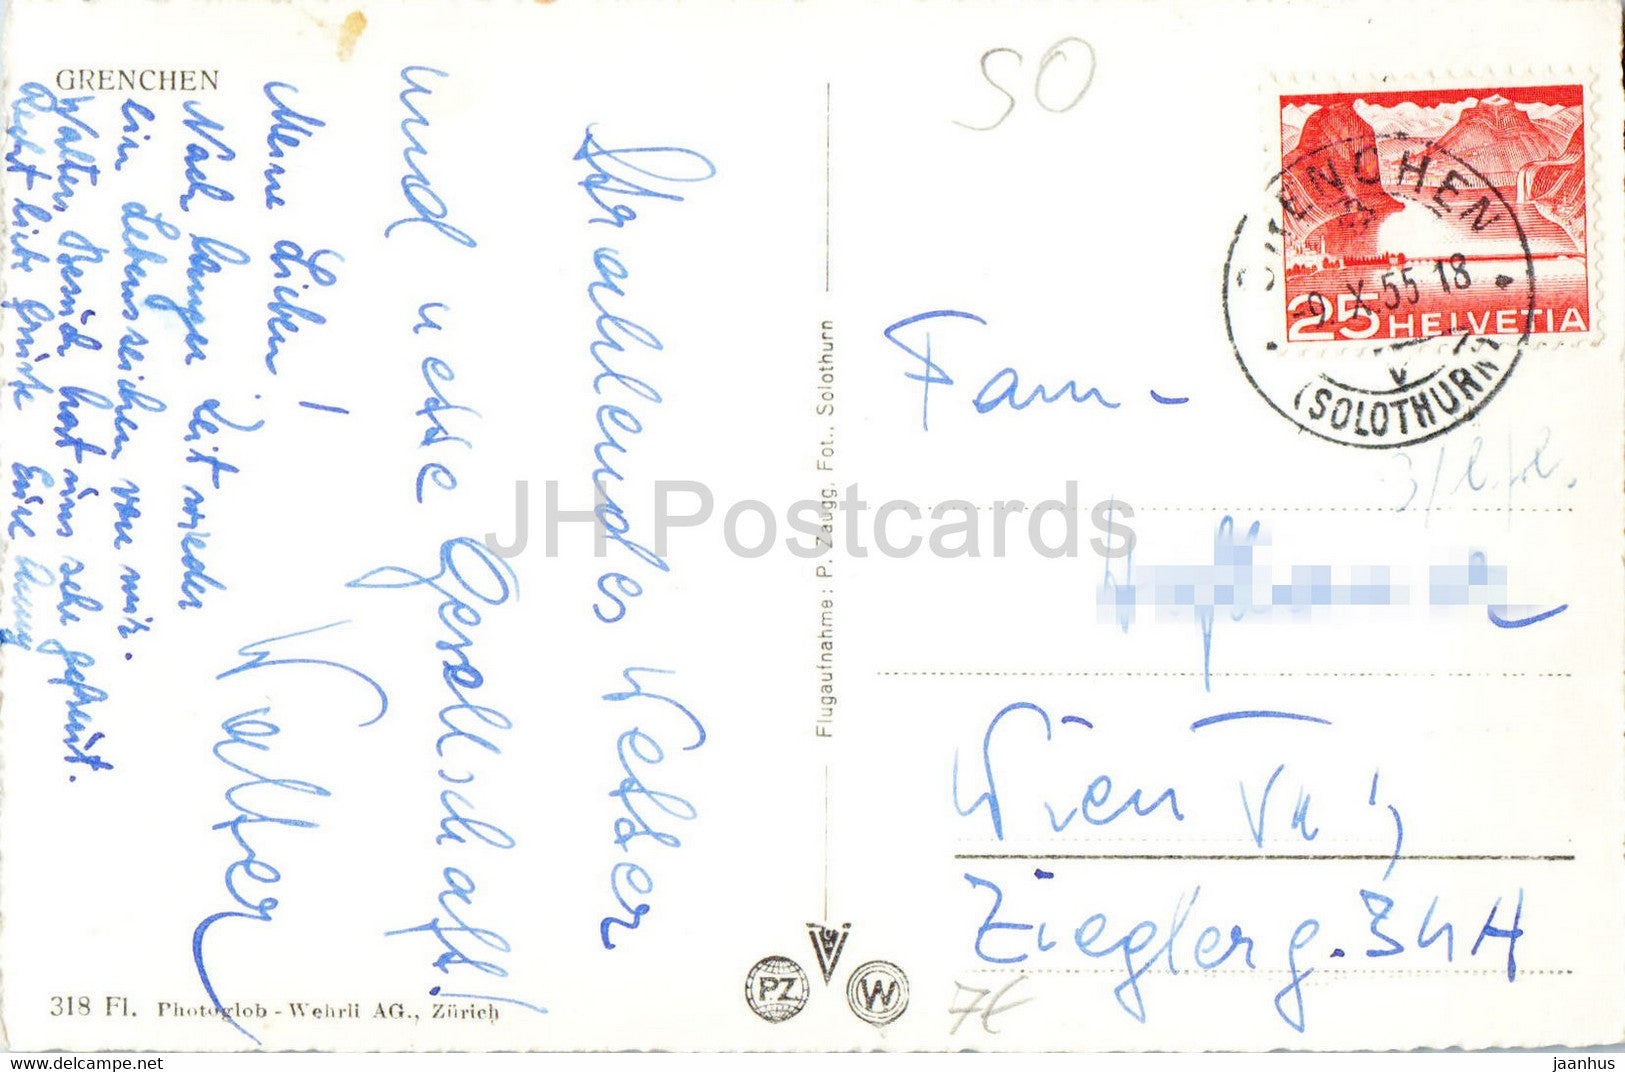 GRENCHEN
Strahlendes Wetter
und nette Gesellschaft!
Walter
Meine Lieben!
Nach langer Zeit wieder
ein Lebenszeichen von mir.
Walters Besuch hat uns sehr gefreut.
Recht liebe Grüsse Eure
318 Fl. Photoglob - Wehrli AG., Zürich
Flugaufnahme: P. Zaugg, Fot., Solothurn
PZ
W
SO
25 HELVETIA
GRENCHEN
-9.X.55 18
(SOLOTHURN)
Fam-
Wien VII,
Zieglerg. 34 A
7€
JH Postcards
HipPostcard.com
jaanhus